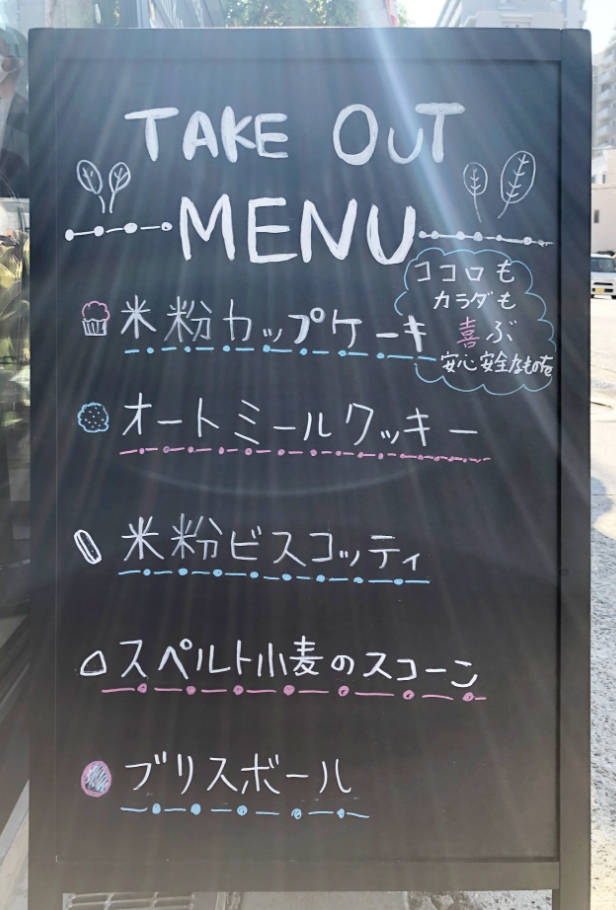 TAKE OUT
MENU
ココロも
カラダも
喜ぶ
安心安全なものを
米粉カップケーキ
オートミールクッキー
米粉ビスコッティ
スペルト小麦のスコーン
ブリスボール